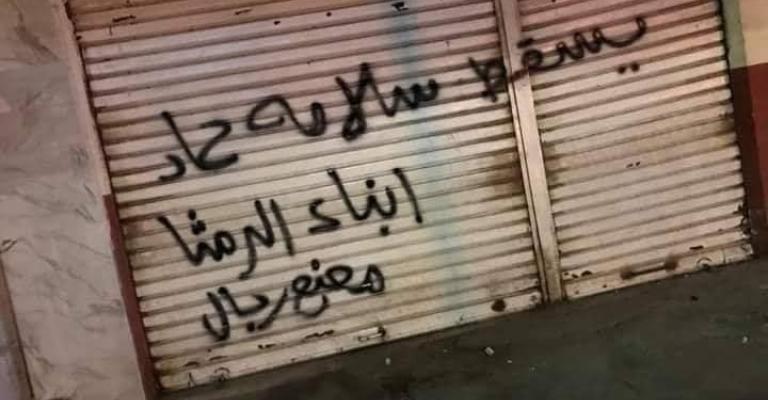 يسقط سلامه حماد
ابناء الرمثا
مصنع رجال